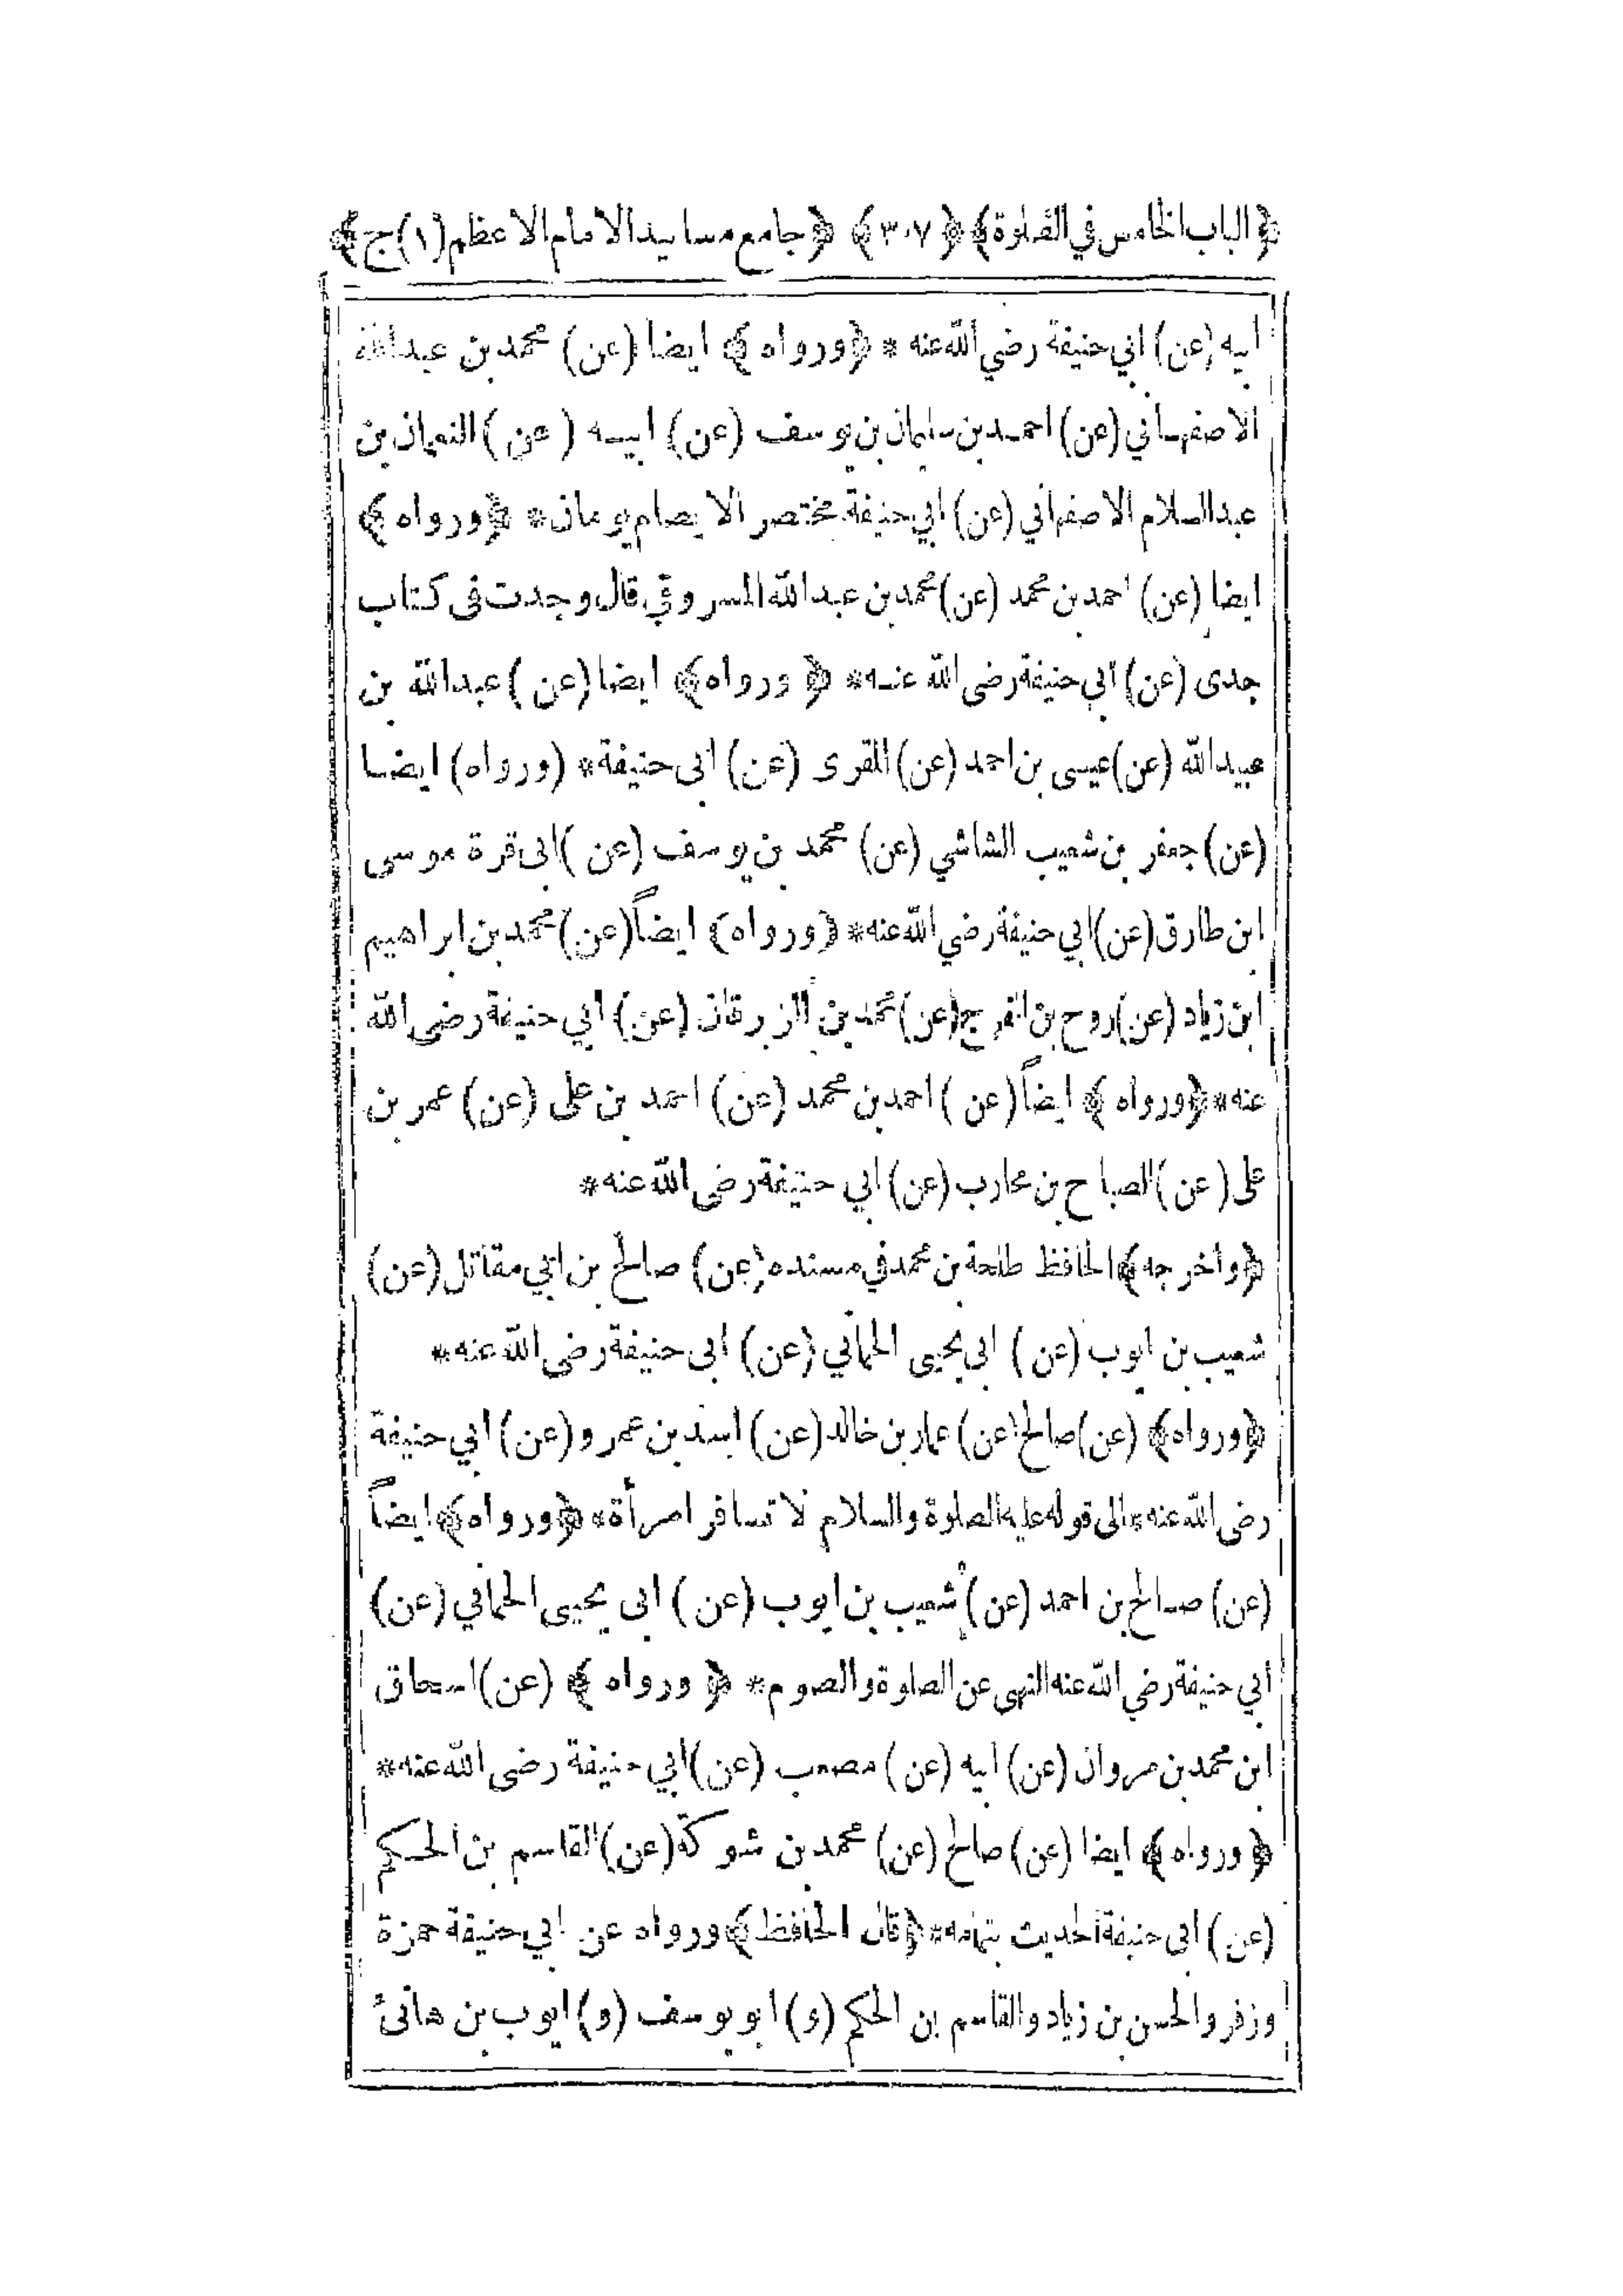 ﴿الباب الخامس في الصلوة﴾ ﴿٣٠٧﴾ ﴿جامع مسانيد الامام الاعظم (١) ج﴾
ابيه (عن) ابي حنيفة رضي الله عنه * ﴿ورواه﴾ ايضا (عن) محمد بن عبدالله
الاصفهاني (عن) احمد بن سليمان بن يوسف (عن) ابيه (عن) النعمان بن
عبدالسلام الاصفهاني (عن) ابي حنيفة مختصر الا يصام يومان * ﴿ورواه﴾
ايضا (عن) احمد بن محمد (عن) محمد بن عبدالله المسروقي قال وجدت في كتاب
جدى (عن) ابي حنيفة رضى الله عنه * ﴿ورواه﴾ ايضا (عن) عبدالله بن
عبيدالله (عن) عيسى بن احمد (عن) المقرى (عن) ابى حنيفة * (ورواه) ايضا
(عن) جعفر بن شعيب الشاشي (عن) محمد بن يوسف (عن) ابى قرة موسى
ابن طارق (عن) ابي حنيفة رضي الله عنه * ﴿ورواه﴾ ايضاً (عن) محمد بن ابراهيم
ابن زياد (عن) روح بن الفرج (عن) محمد بن الزبرقان (عن) ابي حنيفة رضى الله
عنه * ﴿ورواه﴾ ايضاً (عن) احمد بن محمد (عن) احمد بن على (عن) عمر بن
على (عن) الصباح بن محارب (عن) ابي حنيفة رضى الله عنه *
﴿وأخرجه﴾ الحافظ طلحة بن محمد في مسنده (عن) صالح بن ابي مقاتل (عن)
شعيب بن ايوب (عن) ابى يحيى الحماني (عن) ابى حنيفة رضى الله عنه *
﴿ورواه﴾ (عن) صالح (عن) عمار بن خالد (عن) اسد بن عمرو (عن) ابي حنيفة
رضى الله عنه * الى قوله عليه الصلوة والسلام لا تسافر امرأة * ﴿ورواه﴾ ايضاً
(عن) صالح بن احمد (عن) شعيب بن ايوب (عن) ابى يحيى الحماني (عن)
ابي حنيفة رضي الله عنه النهى عن الصلوة والصوم * ﴿ورواه﴾ (عن) اسحاق
ابن محمد بن مروان (عن) ابيه (عن) مصعب (عن) ابي حنيفة رضى الله عنه *
﴿ورواه﴾ ايضا (عن) صالح (عن) محمد بن شوكة (عن) القاسم بن الحكم
(عن) ابى حنيفة الحديث بتمامه * ﴿قال الحافظ﴾ ورواه عن ابي حنيفة حمزة
وزفر والحسن بن زياد والقاسم بن الحكم (و) ابو يوسف (و) ايوب بن هانئ